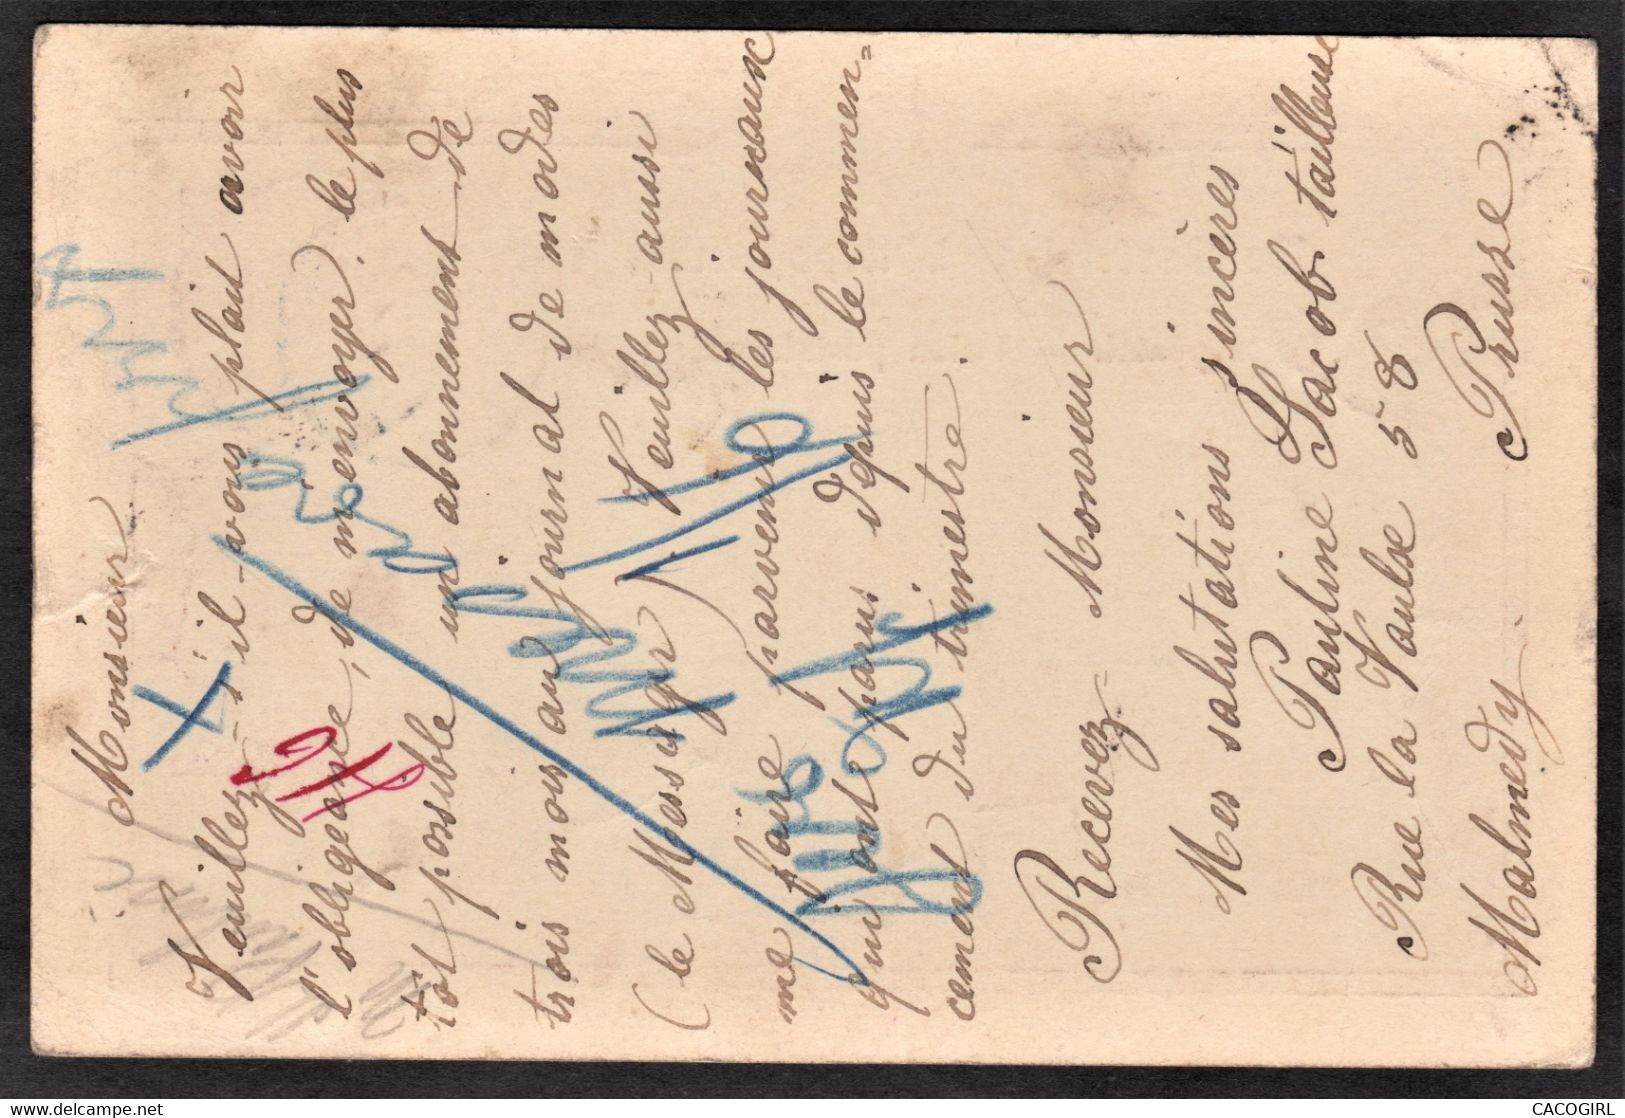 Monsieur
Veuillez-s'il-vous plait avoir
l'obligeance, de m'envoyer le plus
tôt possible un abonnement de
trois mois au journal de modes
(le Messager) Veuillez-aussi
me faire parvenir les journaux
qui ont parus depuis le commen=
cement du trimestre.
Recevez- Monsieur
Mes salutations sincères
Pauline Jacob tailleuse
Rue la Vaulse 58
Malmedy Prusse
CACOGIRL